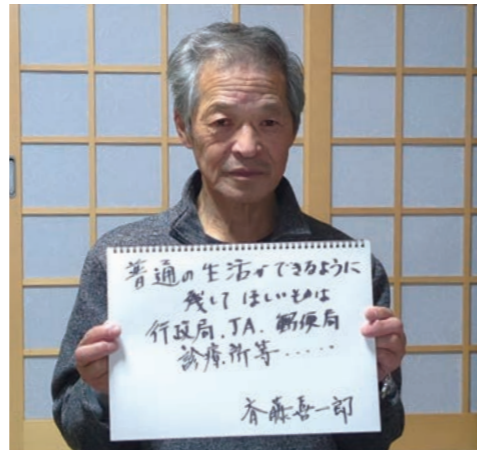 普通の生活ができるように
残してほしいものは
行政局、JA、郵便局
診療所等‥‥‥
斉藤喜一郎